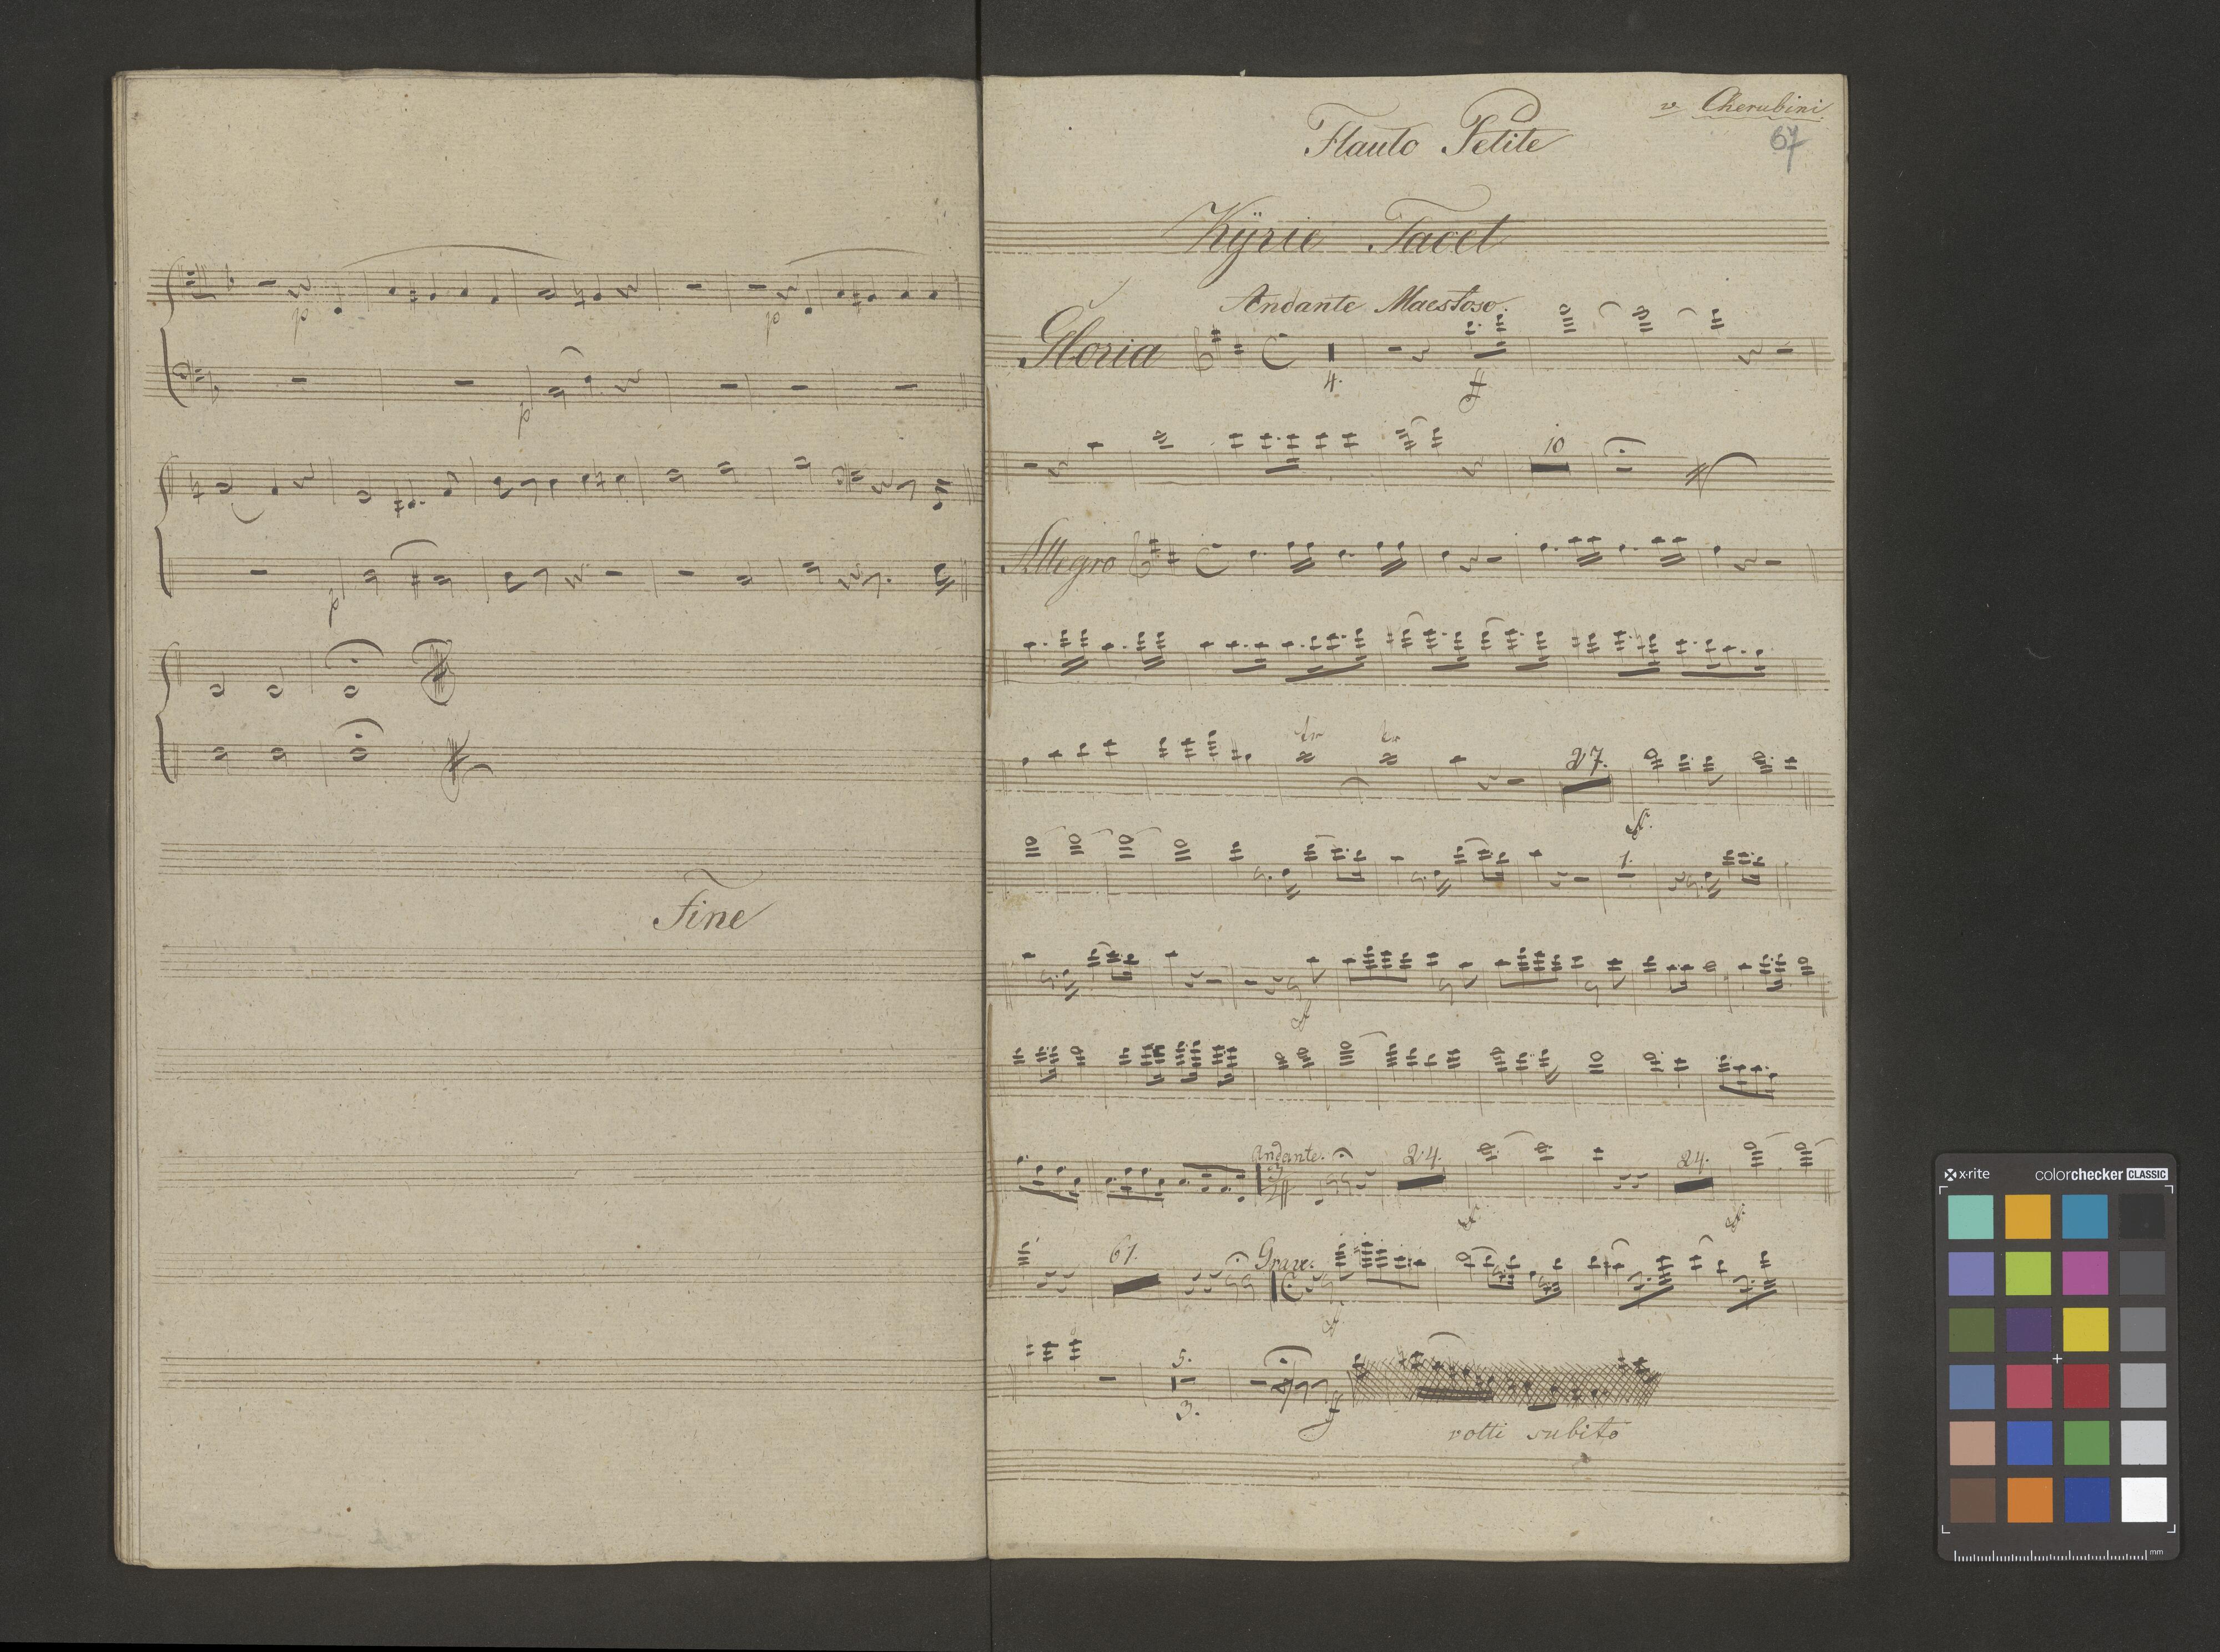 p
p
p
p
Fine
v. Cherubini
67
Flauto Petite
Kÿrie Tacet
Andante Maestoso.
Gloria
4.
ff
10
Allegro
tr
tr
27.
ff.
1.
ff
Andante.
24.
24.
ff.
ff.
61.
Grave.
ff.
5.
3.
ff
volti subito
x-rite
colorchecker CLASSIC
mm